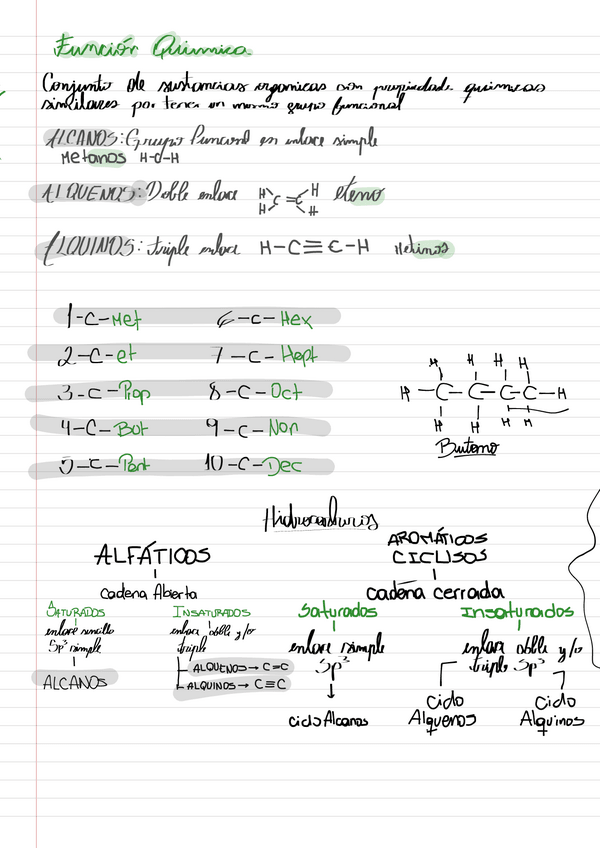 Función Química
Conjunto de sustancias organicas con propiedade quimicas
similares por tener un mismo grupo funcional
ALCANOS: Grupo funcional en enlace simple
Metanos H-C-H
ALQUENOS: Doble enlace H H C = C H H eteno
ALQUINOS: triple enlace H-C≡C-H Metinos
1-C-Met 6-C-Hex
2-C-et 7-C-Hept
3-C-Prop 8-C-Oct
4-C-But 9-C-Non
5-C-Pent 10-C-Dec
H H H H
H-C-C-C-C-H
H H H H
Butano
Hidrocarburos
ALFÁTICOS AROMÁTICOS
CICLISOS
Cadena Abierta cadena cerrada
SATURADOS INSATURADOS Saturados Insaturados
enlace sencillo enlace doble y/o enlace simple enlace doble y/o
Sp³ simple triple Sp³ triple Sp³
ALQUENOS → C=C
ALCANOS ALQUINOS → C≡C
ciclo Alcanos
Ciclo Ciclo
Alquenos Alquinos